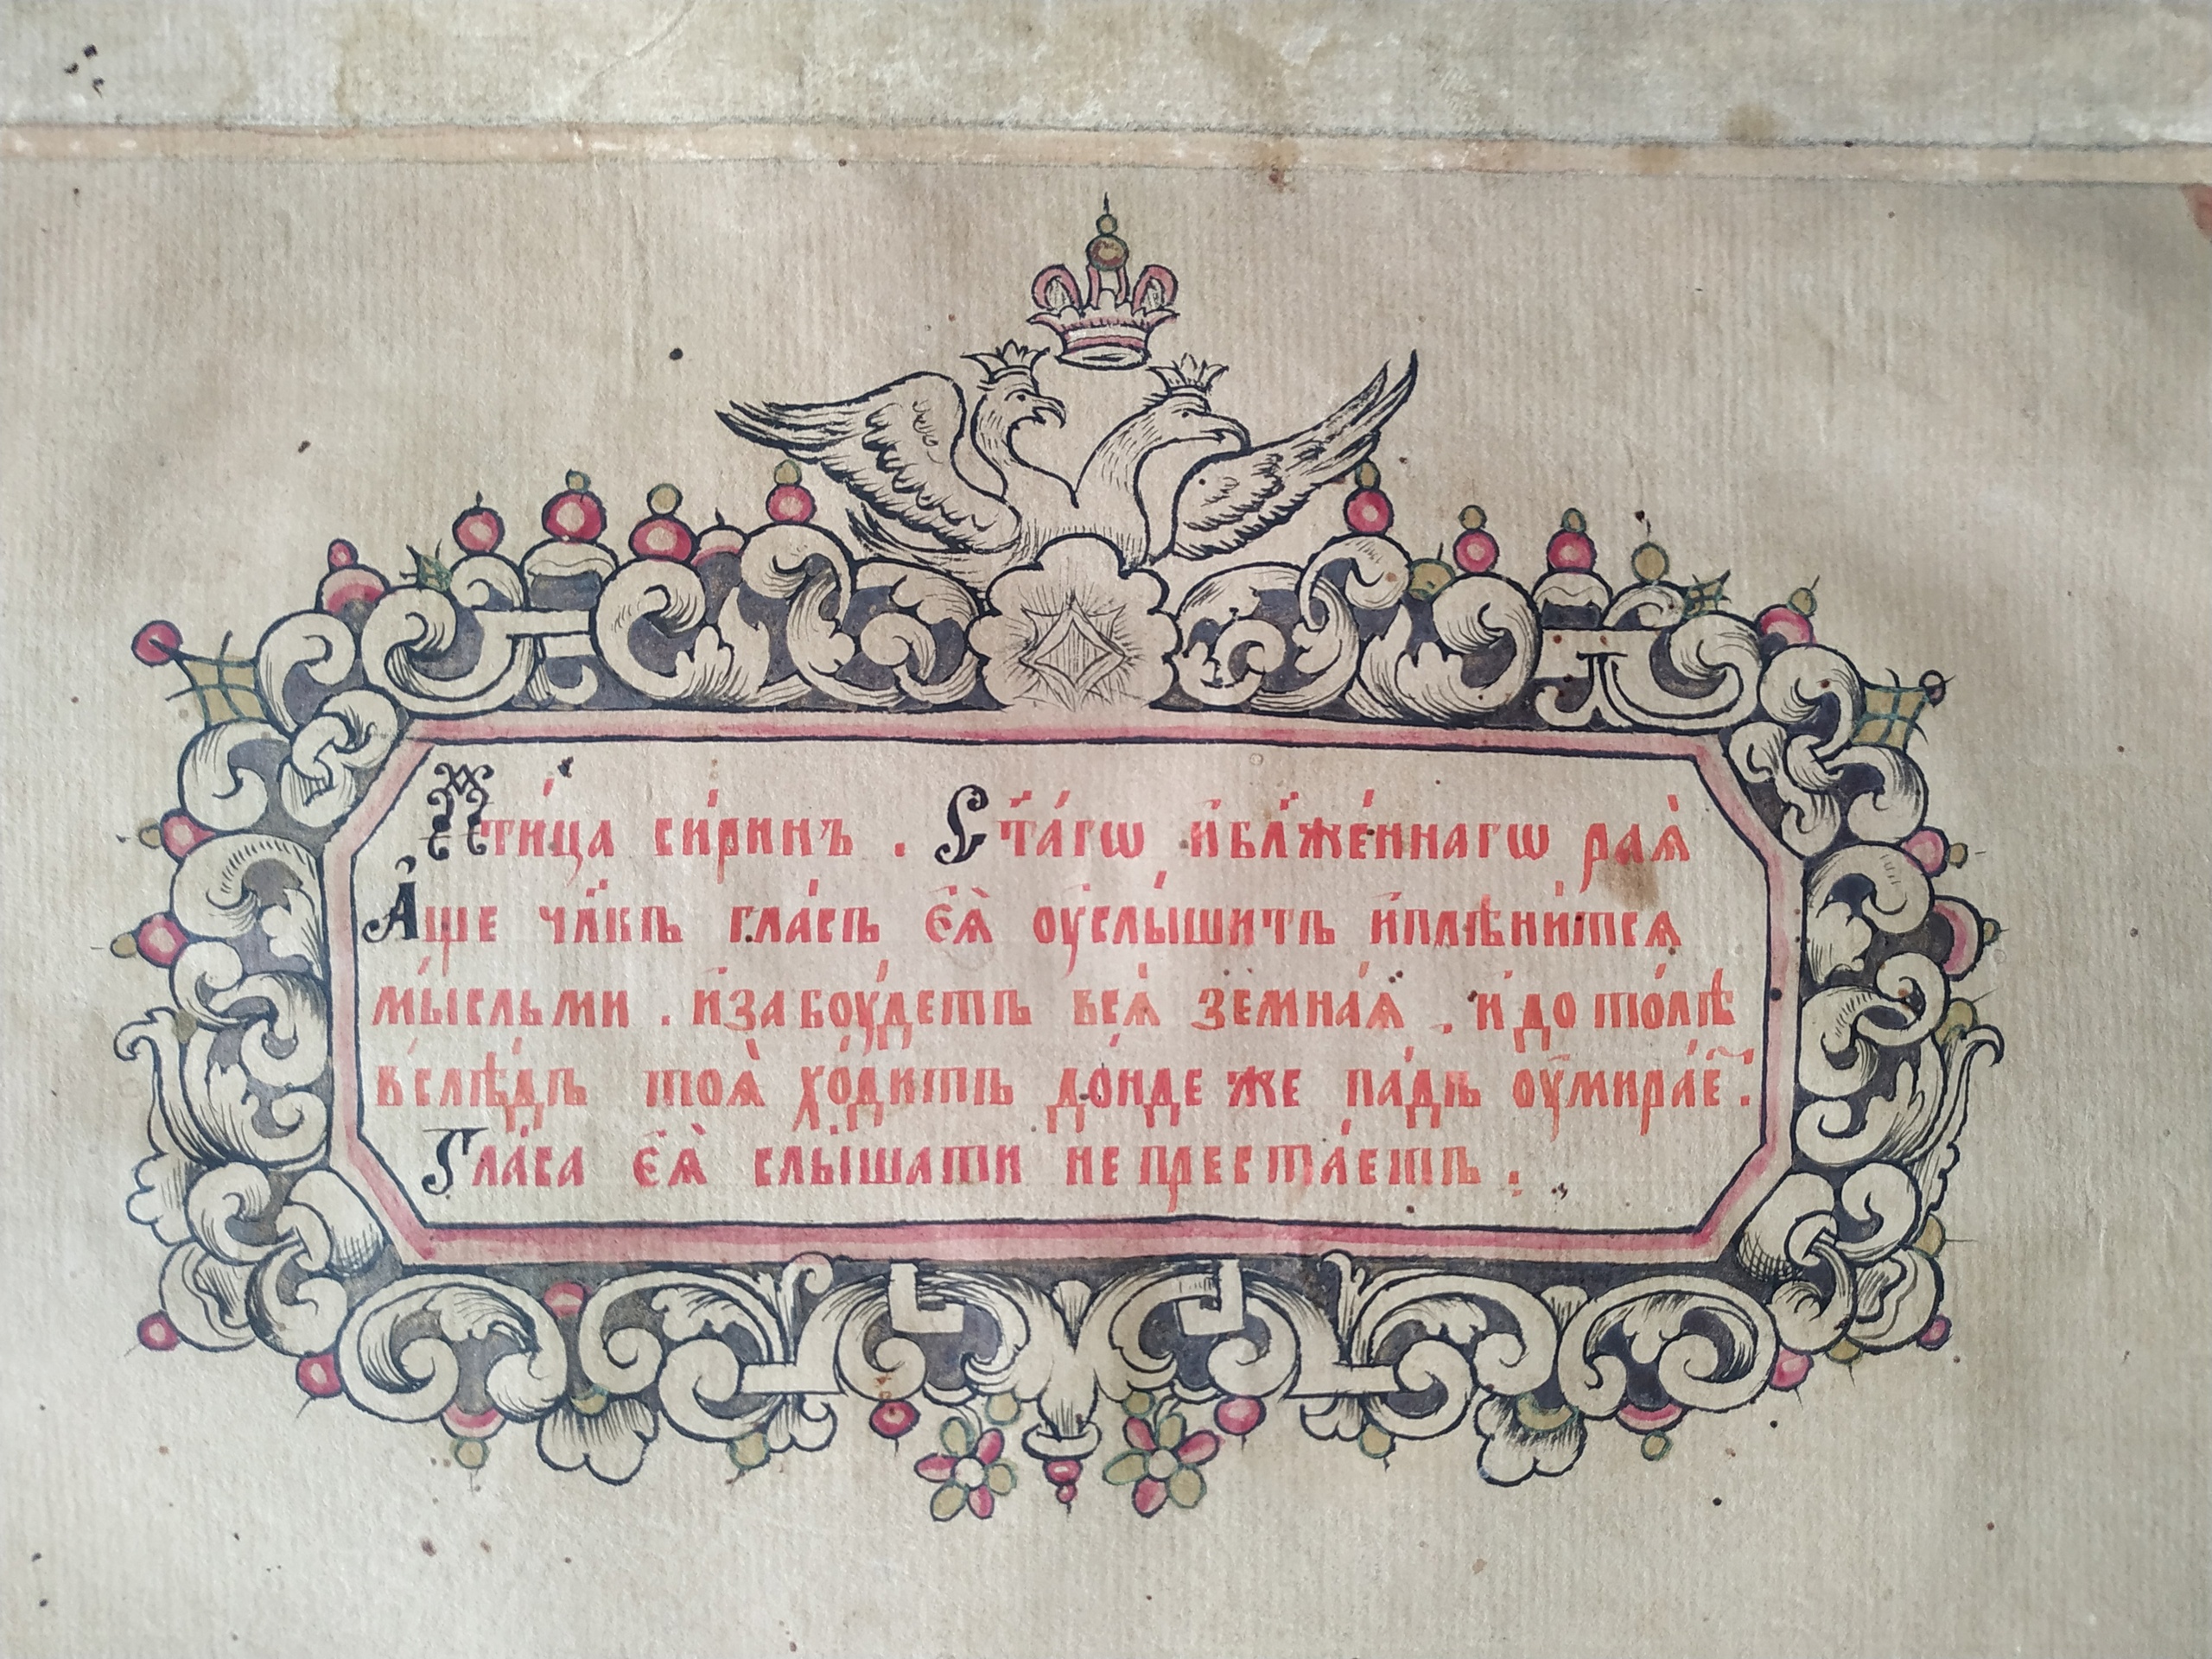 Пти́ца си́ринъ . Ст҃а́гѡ и҆бл҃же́ннагѡ раѧ̀
А҆́ще чл҃къ гла́съ є҆ѧ̀ ᲂу҆слы́шитъ и҆плѣни́тсѧ
мы́сльми . и҆забꙋ́детъ всѧ̑ земна́ѧ . и҆ до то́лѣ
всл́ѣдъ тоѧ̀ хо́дитъ до́нде же па́дъ ᲂу҆мира́е .
Гла́са є҆ѧ̀ слы́шати не преста́етъ .